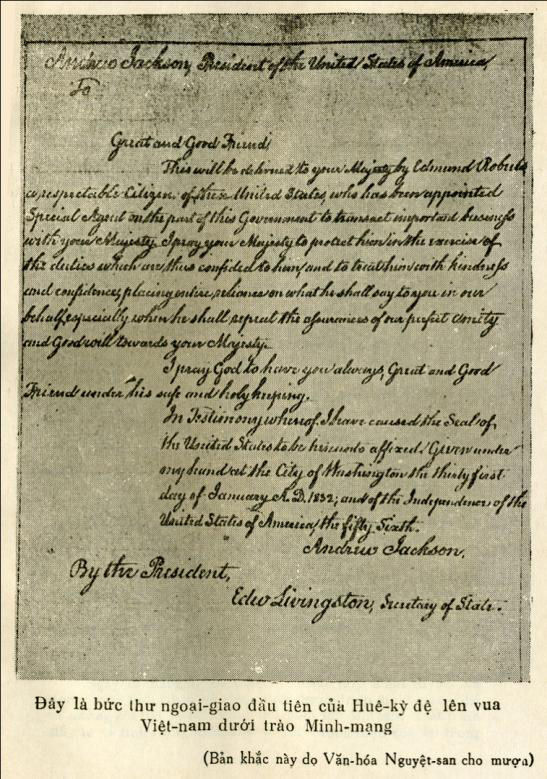 Andrew Jackson, President of the United States of America,
To
Great and Good Friend,
This will be delivered to your Majesty by Edmund Roberts
a respectable Citizen of these United States, who has been appointed
Special Agent on the part of this Government to transact important business
with your Majesty. I pray your Majesty to protect him in the exercise of
the duties which are thus confided to him and to treat him with kindness
and confidence, placing entire reliance on what he shall say to you in our
behalf, especially when he shall repeat the assurances of our perfect amity
and Good will towards your Majesty.
I pray God to have you always, Great and Good
Friend under his safe and holy keeping.
In Testimony whereof, I have caused the Seal of
the United States to be hereunto affixed. Given under
my hand at the City of Washington the thirty first
day of January A.D. 1832; and of the Independence of the
United States of America, the fifty Sixth.
Andrew Jackson.
By the President,
Edw Livingston, Secretary of State.
Đây là bức thư ngoại-giao đầu tiên của Huê-kỳ đệ lên vua
Việt-nam dưới trào Minh-mạng
(Bản khắc này do Văn-hóa Nguyệt-san cho mượn)